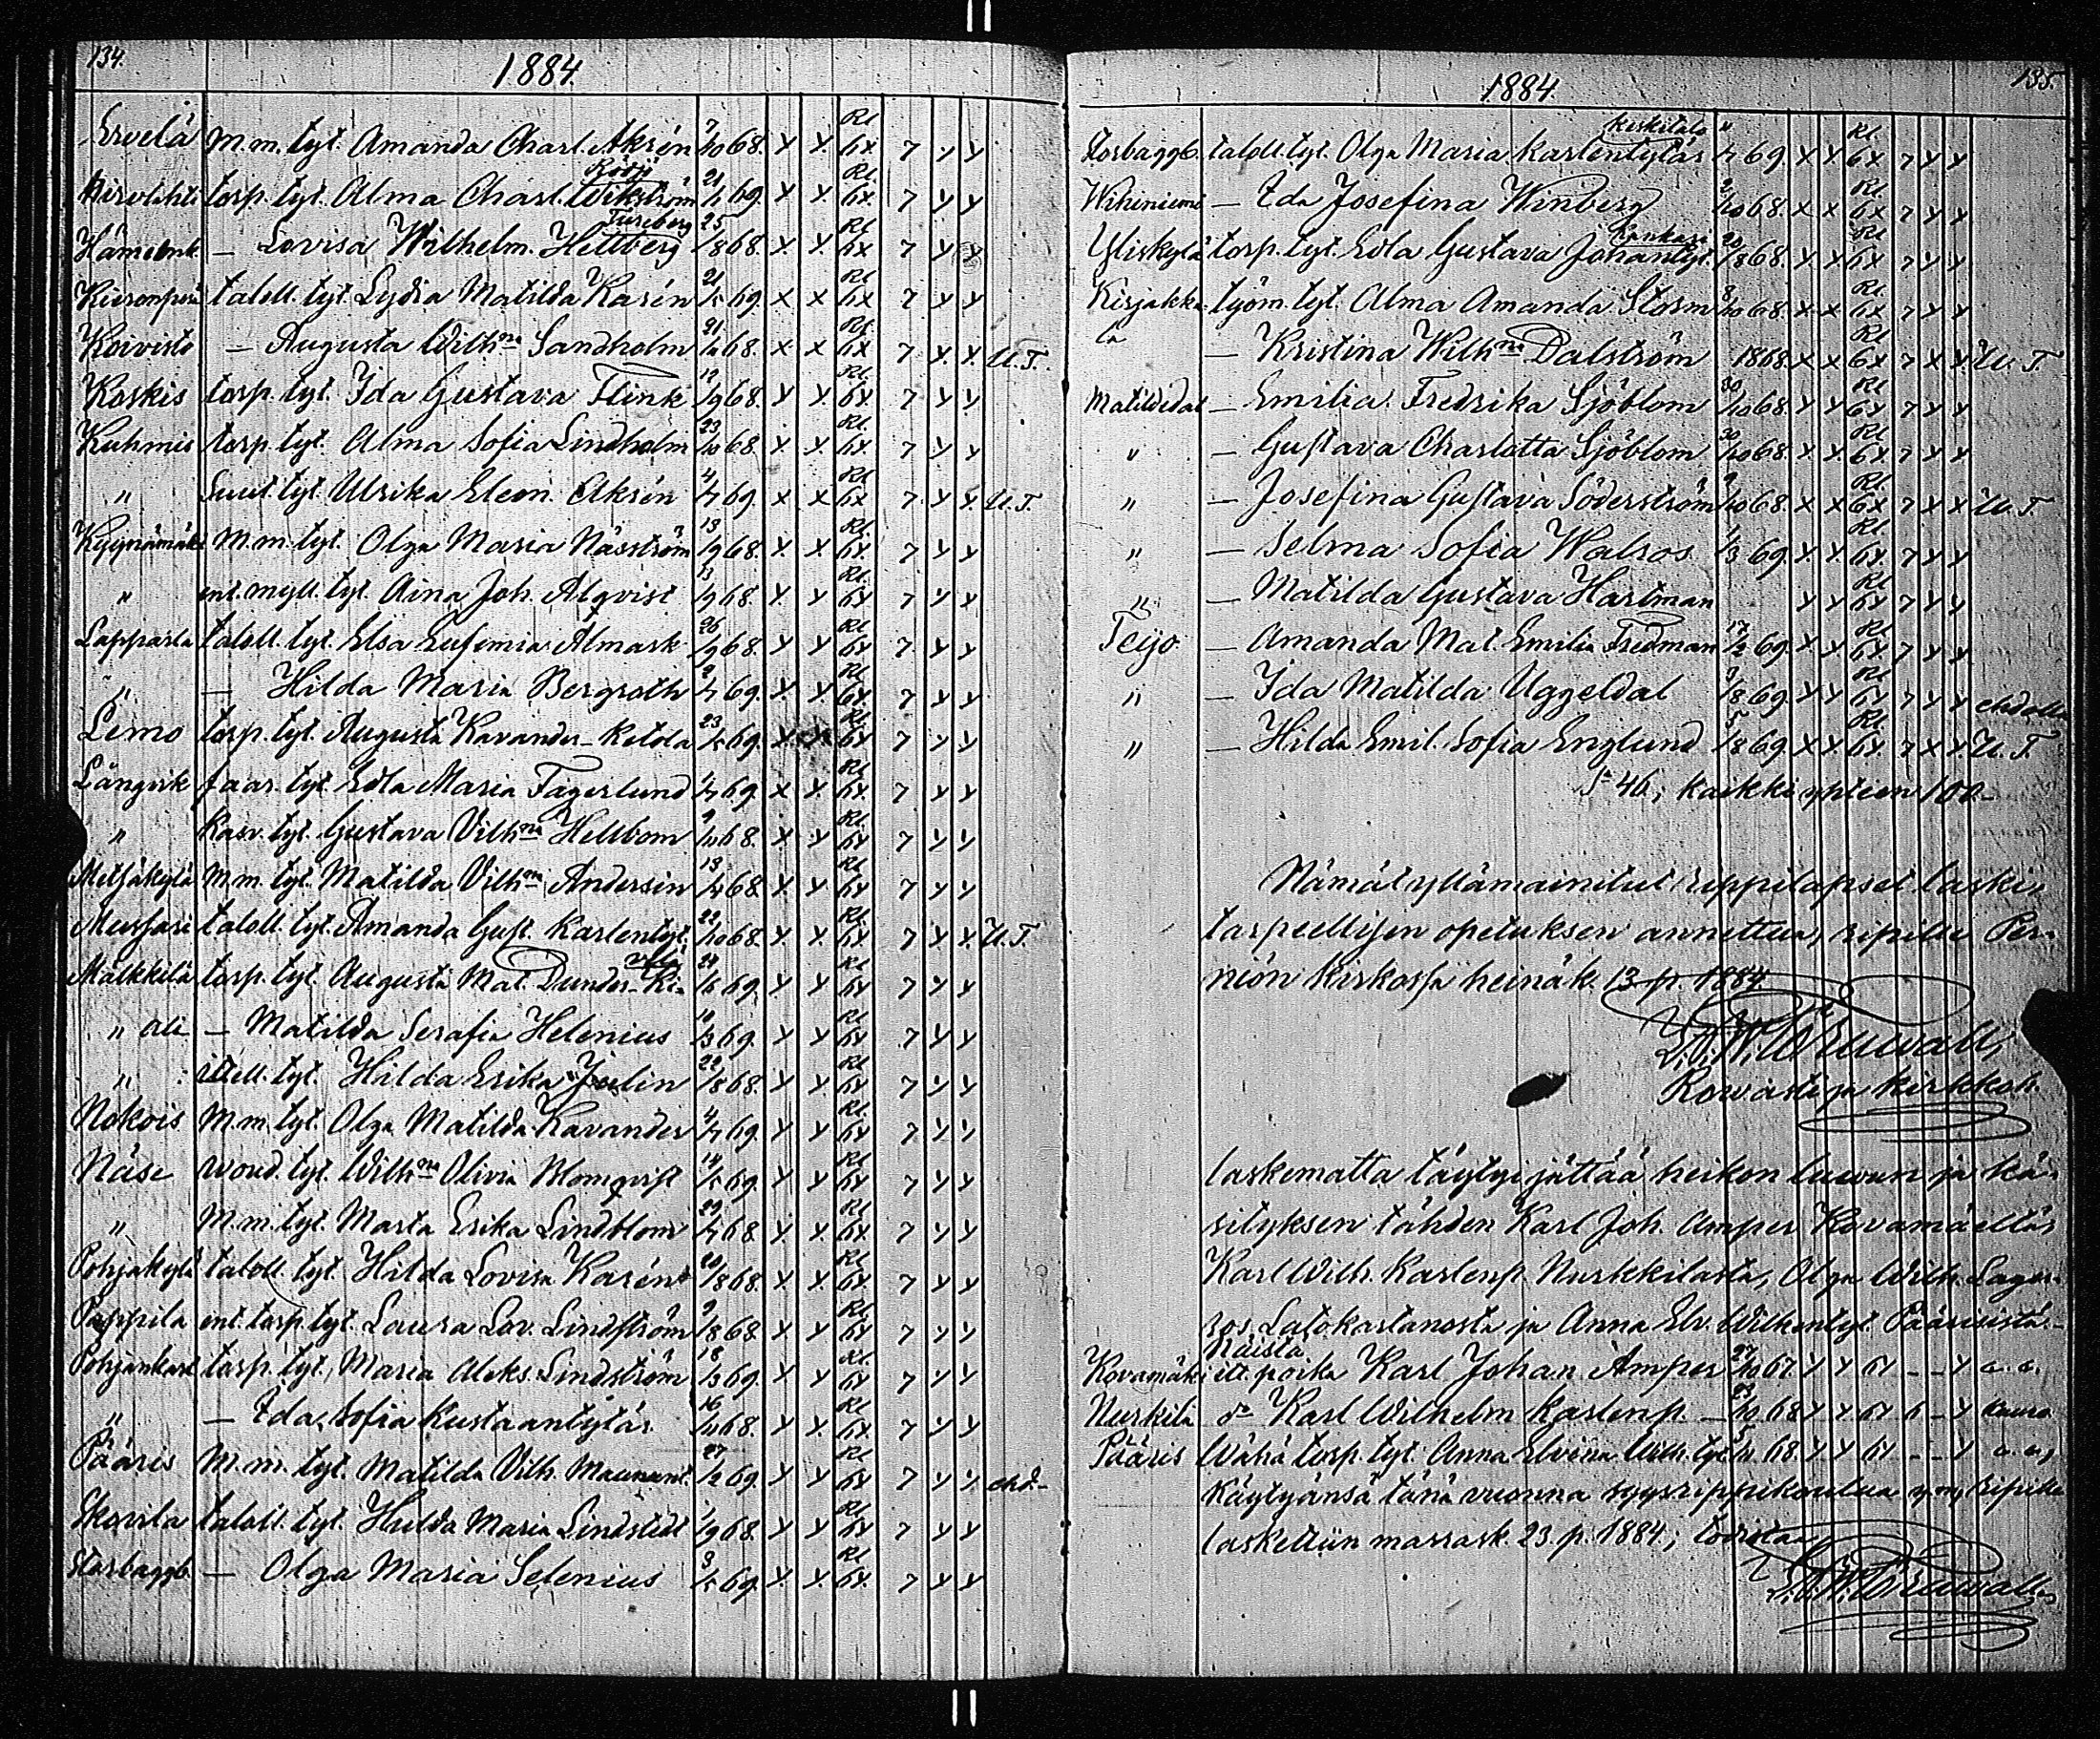 134.
1884.
Ervelä M.m. tyt. Amanda Charl. Akrén 7/10 68. x x Rl 6x 7 x x
torp. tyt. Alma Charl. Wikström 21/1 69. x x Rl 6x 7 x x
— Lovisa Wilhelm. Hellberg 25/8 68. x x Rl 6x 7 x x
taloll. tyt. Lydia Matilda Karén 21/5 69. x x Rl 6x 7 x x
Koivisto — Augusta Wilhna Sandholm 68. x x Rl 6x 7 x x U.T.
Koskis torp. tyt. Ida Gustava Flink 19/9 68. x x Rl 6x 7 x x
Kuhmis torp. tyt. Alma Sofia Lindholm 23/10 68. x x Rl 6x 7 x x
" Suut. tyt. Ulrika Eleon. Akrén 4/7 69. x x Rl 6x 7 x x U.T.
Kyynämäki M.m. tyt. Olga Maria Näsström 13/9 68. x x Rl 6x 7 x x
" ent. myll. tyt. Aina Joh. Alqvist 13/9 68. x x Rl 6x 7 x x
Lapparla taloll. tyt. Elsa Eufemia Almark 26/9 68. x x Rl 6x 7 x x
" — Hilda Maria Bergroth 2/7 69. x x Rl 6x 7 x x
Lemo torp. tyt. Augusta Kavander-Ketola 23/5 69. x x Rl 6x 7 x x
Långvik faar. tyt. Edla Maria Fagerlund 1/7 69. x x Rl 6x 7 x x
" Kasv. tyt. Gustava Vilhna Hellbom 9/10 68. x x Rl 6x 7 x x
Metsäkylä M.m. tyt. Matilda Vilhna Andersin 13/ 68. x x Rl 6x 7 x x
taloll. tyt. Amanda Gust. Karlentyt. 22/10 68. x x Rl 6x 7 x x U.T.
Mälkkilä torp. tyt. Augusta Mat. Dunder- 24/5 69. x x Rl 6x 7 x x
" ali — Matilda Serafia Helenius 10/3 69. x x Rl 6x 7 x x
" itsell. tyt. Hilda Erika Julin 22/8 68. x x Rl 6x 7 x x
Nokois M.m. tyt. Olga Matilda Kavander 4/7 69. x x Rl 6x 7 x x
Näse woud. tyt. Wilhna Olivia Blomqvist 14/5 69. x x Rl 6x 7 x x
" M.m. tyt. Marta Erika Lindblom 29/7 68. x x Rl 6x 7 x x
Pohjakylä taloll. tyt. Hilda Lovisa Karén 20/8 68. x x Rl 6x 7 x x
Pappila ent. torp. tyt. Laura Lov. Lindström 9/8 68. x x Rl 6x 7 x x
torp. tyt. Maria Aleks. Lindström 18/3 69. x x Rl 6x 7 x x
" — Ida Sofia Kustaantytär 16/ 68. x x Rl 6x 7 x x
Pääris M.m. tyt. Matilda Vilh. 27/2 69. x x Rl 6x 7 x x ehd.
Skoila taloll. tyt. Hulda Maria Lindstedt 1/9 68. x x Rl 6x 7 x x
Storbaggb. — Olga Maria Selenius 3/5 69. x x Rl 6x 7 x x
135.
1884
Keskitalo
Storbaggb. taloll. tyt. Olga Maria Karlentytär 11/7 69. x x Rl 6x 7 x x
Wihiniemi — Ida Josefina Winberg 2/10 68. x x Rl 6x 7 x x
Yliskylä torp. tyt. Edla Gustava Johantyt. 20/8 68. x x Rl 6x 7 x x
Kirjakka- työm. tyt. Alma Amanda Storm 8/10 68. x x Rl 6x 7 x x
la — Kristina Wilhna Dalström 1868. x x Rl 6x 7 x x U.T.
Matildedal — Emilia Fredrika Sjöblom 30/10 68. x x Rl 6x 7 x x
" — Gustava Charlotta Sjöblom 30/10 68. x x Rl 6x 7 x x
" — Josefina Gustava Söderström 9/10 68. x x Rl 6x 7 x x U.T.
" — Selma Sofia Walros 1/3 69. x x Rl 6x 7 x x
" — Matilda Gustava Hartman x x Rl 6x 7 x x
Teijo — Amanda Mat. Emilia Fredman 17/2 69. x x Rl 6x 7 x x
" — Ida Matilda Uggeldal 3/8 69. x x Rl 6x 7 x x ehdolla
" — Hilda Emil. Sofia Englund 5/8 69. x x Rl 6x 7 x x U.T.
46, kaikki ypteen 100.
Nämät yllämainitut rippilapset laski,
tarpeellisen opetuksen annettua, ripille Per-
niön kirkossa heinäk. 13 p. 1884.
Rowasti ja kirkkoh.
laskematta täytyi jättää heikon luwun ja kä-
sityksen tähden Karl Joh. Amper Kovamäeltä,
Karl Wilh. Karlenp. Nurkkilasta, Olga Wilh. Lager-
ros Latokartanosta ja Anna Elv. Wilhentyt. Päärisistä.
Näistä
Kovamäki itt. poika Karl Johan Amper 27/10 67 x x 6x - - x a.a.
Nurkila do Karl Wilhelm Karlenp. 23/10 68 x x 6x 6 - x
Pääris Wähä torp. tyt. Anna Elvina Wilh. tyt. 68. x x 6x - - x a.a.
käytyänsä tänä vuonna syysrippikoulua ripille
laskettiin marrask. 23 p. 1884; todistaa